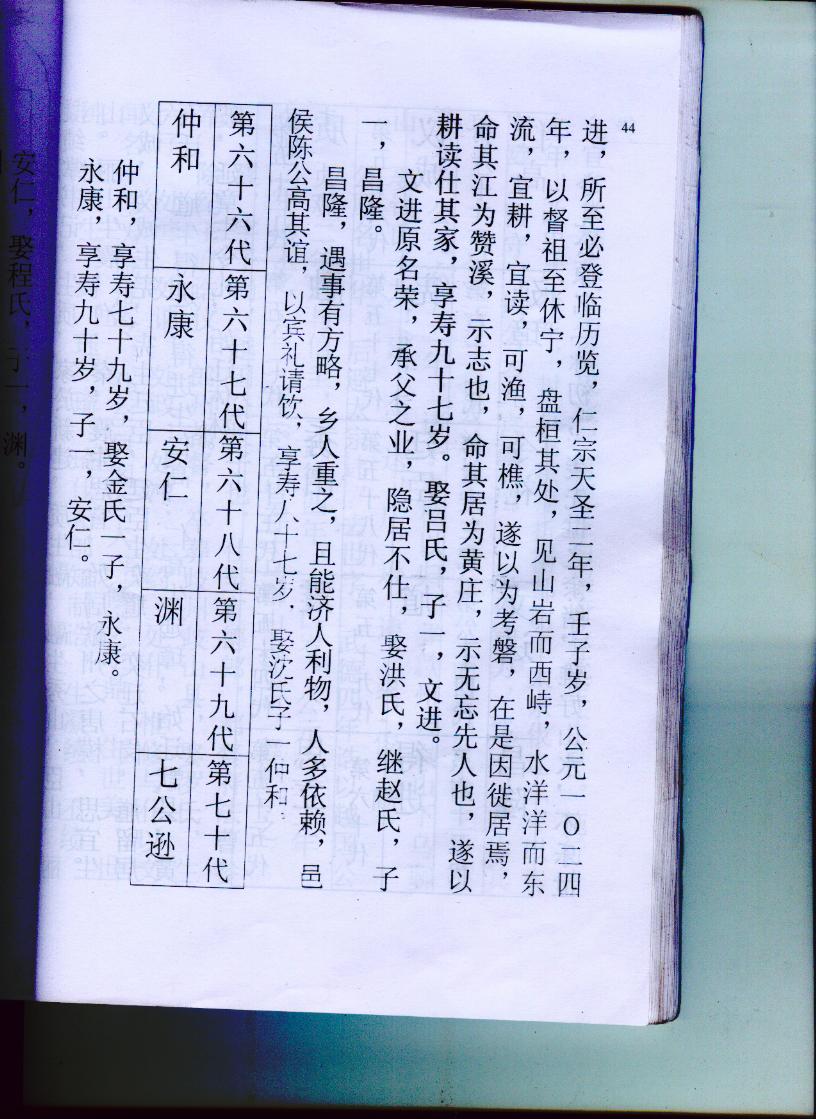 44
进，所至必登临历览，仁宗天圣二年，壬子岁，公元一〇二四
年，以督祖至休宁，盘桓其处，见山岩而西峙，水洋洋而东
流，宜耕，宜读，可渔，可樵，遂以为考磐，在是因徙居焉，
命其江为赞溪，示志也，命其居为黄庄，示无忘先人也，遂以
耕读仕其家，享寿九十七岁。娶吕氏，子一，文进。
文进原名荣，承父之业，隐居不仕，娶洪氏，继赵氏，子
一，昌隆。
昌隆，遇事有方略，乡人重之，且能济人利物，人多依赖，邑
侯陈公高其谊，以宾礼请饮，享寿八十七岁．娶沈氏子一仲和．
第六十六代 第六十七代 第六十八代 第六十九代 第七十代
仲和 永康 安仁 渊 七公逊
仲和，享寿七十九岁，娶金氏一子，永康。
永康，享寿九十岁，子一，安仁。
安仁，娶程氏，子一，渊。